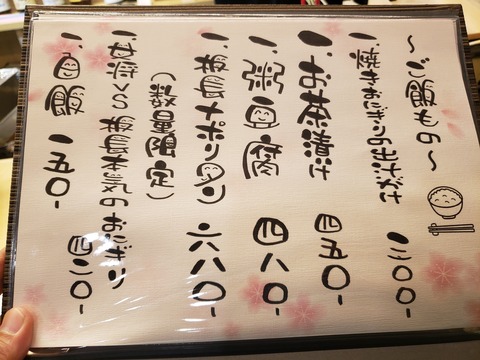 ～ご飯もの～
一、焼きおにぎりの出汁がけ 二〇〇-
一、お茶漬け 四五〇-
一、粥豆腐 四八〇-
一、板長ナポリタン 六八〇-
(数量限定)
一、女将VS板長本気のおにぎり 四二〇-
一、白飯 一五〇-